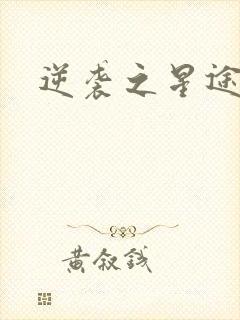 逆袭之星途
黄叙钱